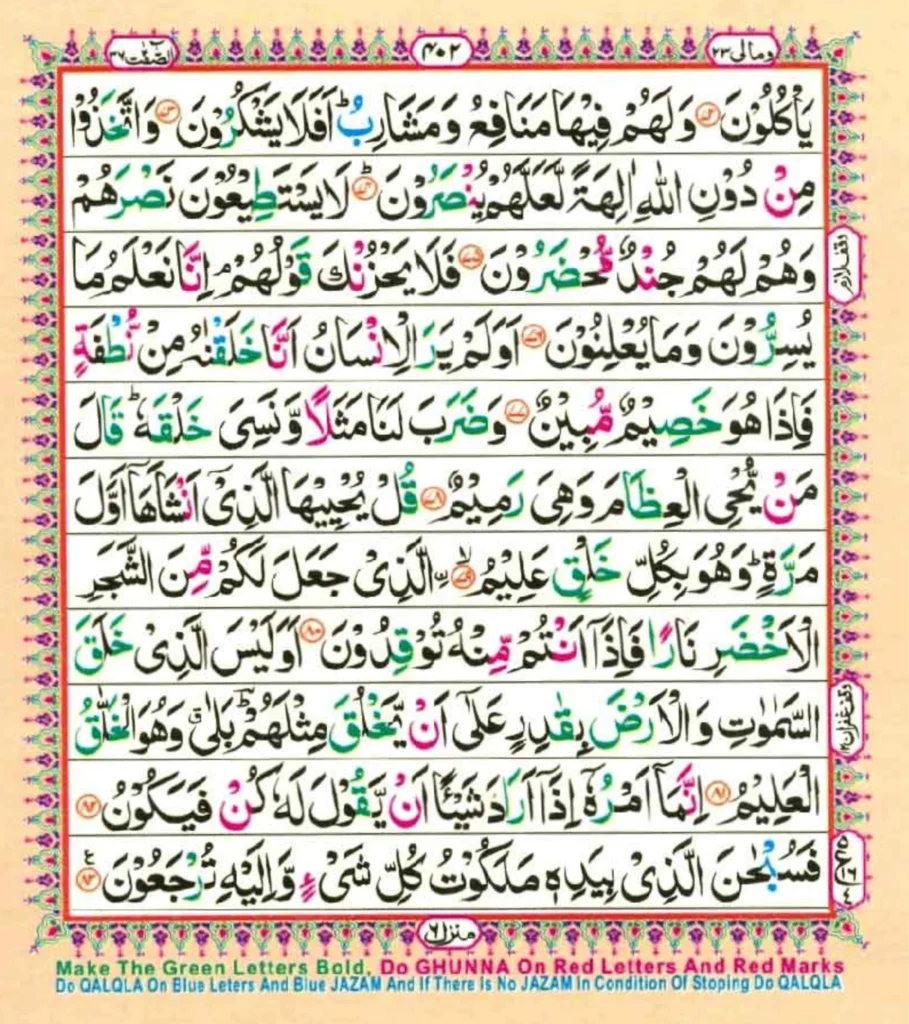 الصّٰفّٰت ٣٧
٤٠٢
ومالی ٢٣
يَاْكُلُوْنَ ﴿٧٢﴾ وَلَهُمْ فِيْهَا مَنَافِعُ وَمَشَارِبُ ؕ اَفَلَا يَشْكُرُوْنَ ﴿٧٣﴾ وَاتَّخَذُوْا
مِنْ دُوْنِ اللّٰهِ اٰلِهَةً لَّعَلَّهُمْ يُنْصَرُوْنَ ﴿٧٤﴾ؕ لَا يَسْتَطِيْعُوْنَ نَصْرَهُمْ
وَهُمْ لَهُمْ جُنْدٌ مُّحْضَرُوْنَ ﴿٧٥﴾ فَلَا يَحْزُنْكَ قَوْلُهُمْ ۘ اِنَّا نَعْلَمُ مَا
وقف لازم
يُسِرُّوْنَ وَمَا يُعْلِنُوْنَ ﴿٧٦﴾ اَوَلَمْ يَرَ الْاِنْسَانُ اَنَّا خَلَقْنٰهُ مِنْ نُّطْفَةٍ
فَاِذَا هُوَ خَصِيْمٌ مُّبِيْنٌ ﴿٧٧﴾ وَضَرَبَ لَنَا مَثَلًا وَّنَسِىَ خَلْقَهٗ ؕ قَالَ
مَنْ يُّحْىِ الْعِظَامَ وَهِىَ رَمِيْمٌ ﴿٧٨﴾ قُلْ يُحْيِيْهَا الَّذِىْٓ اَنْشَاَهَآ اَوَّلَ
مَرَّةٍ ؕ وَهُوَ بِكُلِّ خَلْقٍ عَلِيْمُ ﴿٧٩﴾ ۙ الَّذِىْ جَعَلَ لَكُمْ مِّنَ الشَّجَرِ
الْاَخْضَرِ نَارًا فَاِذَآ اَنْتُمْ مِّنْهُ تُوْقِدُوْنَ ﴿٨٠﴾ اَوَلَيْسَ الَّذِىْ خَلَقَ
السَّمٰوٰتِ وَالْاَرْضَ بِقٰدِرٍ عَلٰٓى اَنْ يَّخْلُقَ مِثْلَهُمْ ؕ بَلٰى ۗ وَهُوَ الْخَلّٰقُ
وقف غفران
الْعَلِيْمُ ﴿٨١﴾ اِنَّمَآ اَمْرُهٗۤ اِذَآ اَرَادَ شَيْـًٔا اَنْ يَّقُوْلَ لَهٗ كُنْ فَيَكُوْنُ ﴿٨٢﴾
فَسُبْحٰنَ الَّذِىْ بِيَدِهٖ مَلَكُوْتُ كُلِّ شَىْءٍ وَّاِلَيْهِ تُرْجَعُوْنَ ﴿٨٣﴾
منزل ٦
Make The Green Letters Bold, Do GHUNNA On Red Letters And Red Marks
Do QALQLA On Blue Leters And Blue JAZAM And If There Is No JAZAM In Condition Of Stoping Do QALQLA